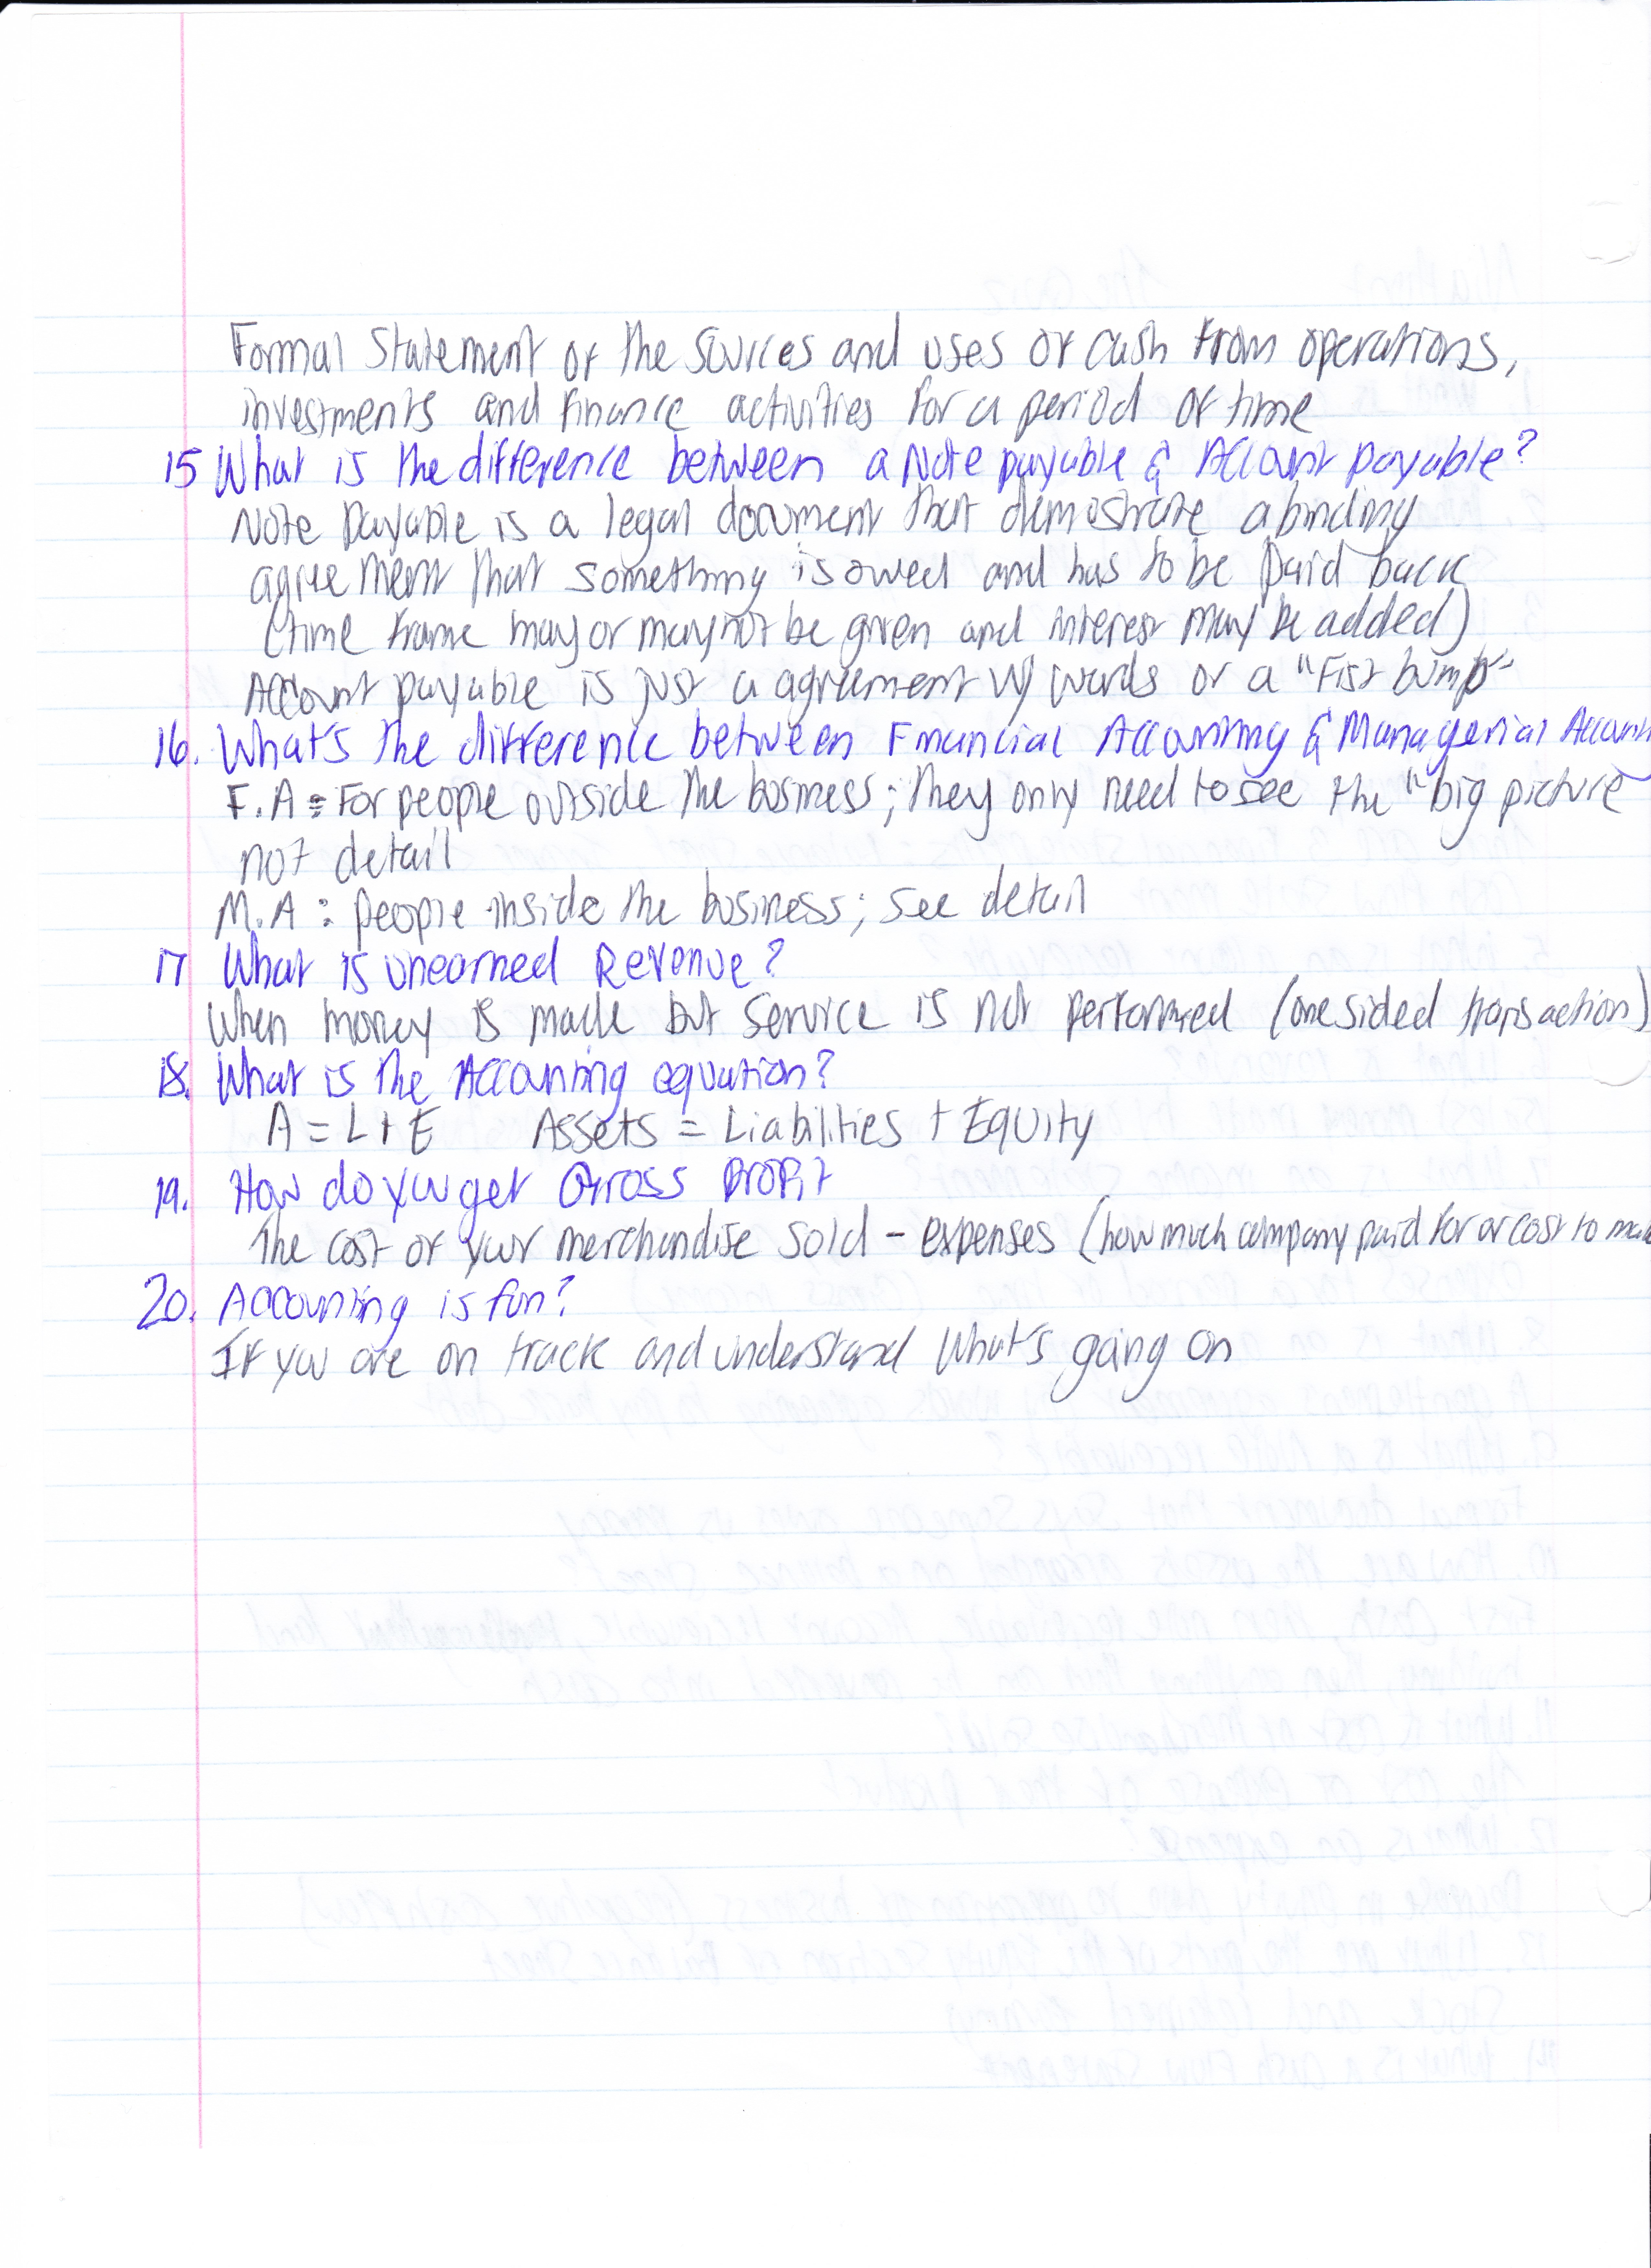 Formal Statement of the sources and uses of cash from operations,
investments and finance activities for a period of time
15 What is the difference between a Note payable & Account payable?
Note Payable is a legal document that demostrate a binding
agreement that something is owed and has to be paid back
(time frame may or may not be given and interest may be added)
Account payable is just a agreement w/ words or a "Fist bump"
16. What's the difference between Financial Accounting & Managerial Accoun
F.A = For people outside the business; they only need to see the "big picture"
not detail
M.A : people inside the business; see detail
17 What is unearned Revenue?
When money is made but service is not performed (one sided transaction)
18. What is the Accounting equation?
A = L + E Assets = Liabilities + Equity
19. How do you get Gross Profit
The cost of your merchandise sold - expenses (how much company paid for or cost to mak
20. Accounting is fun?
If you are on track and understand what's going on